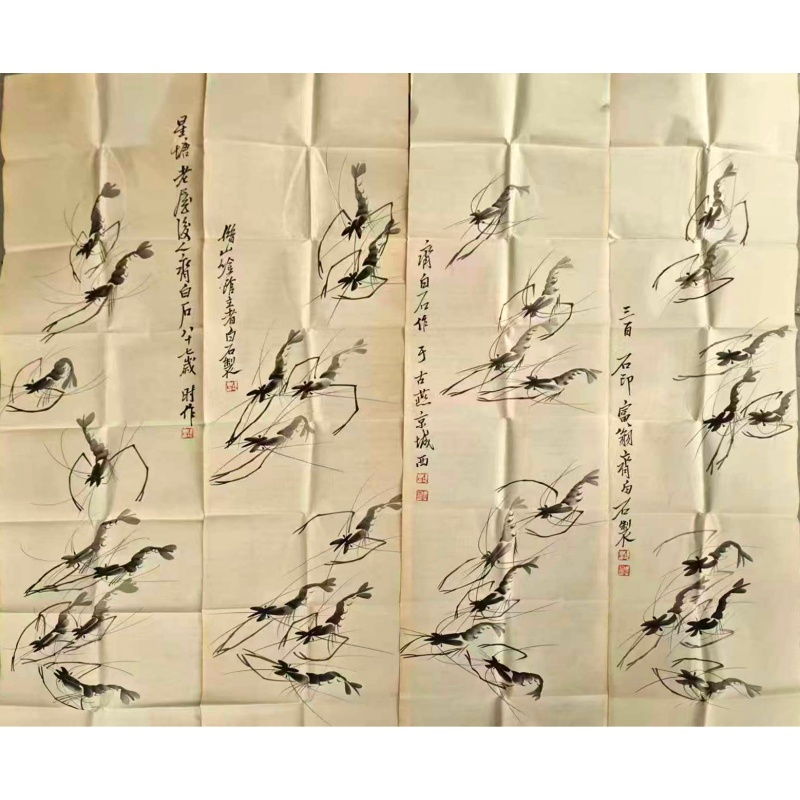 星塘老屋後人齊白石八十七歲時作
借山吟館主者白石製
齊白石作于古燕京城西
三百石印富翁齊白石製